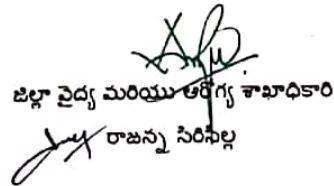 జిల్లా వైద్య మరియు ఆరోగ్య శాఖాధికారి
రాజన్న సిరిసిల్ల